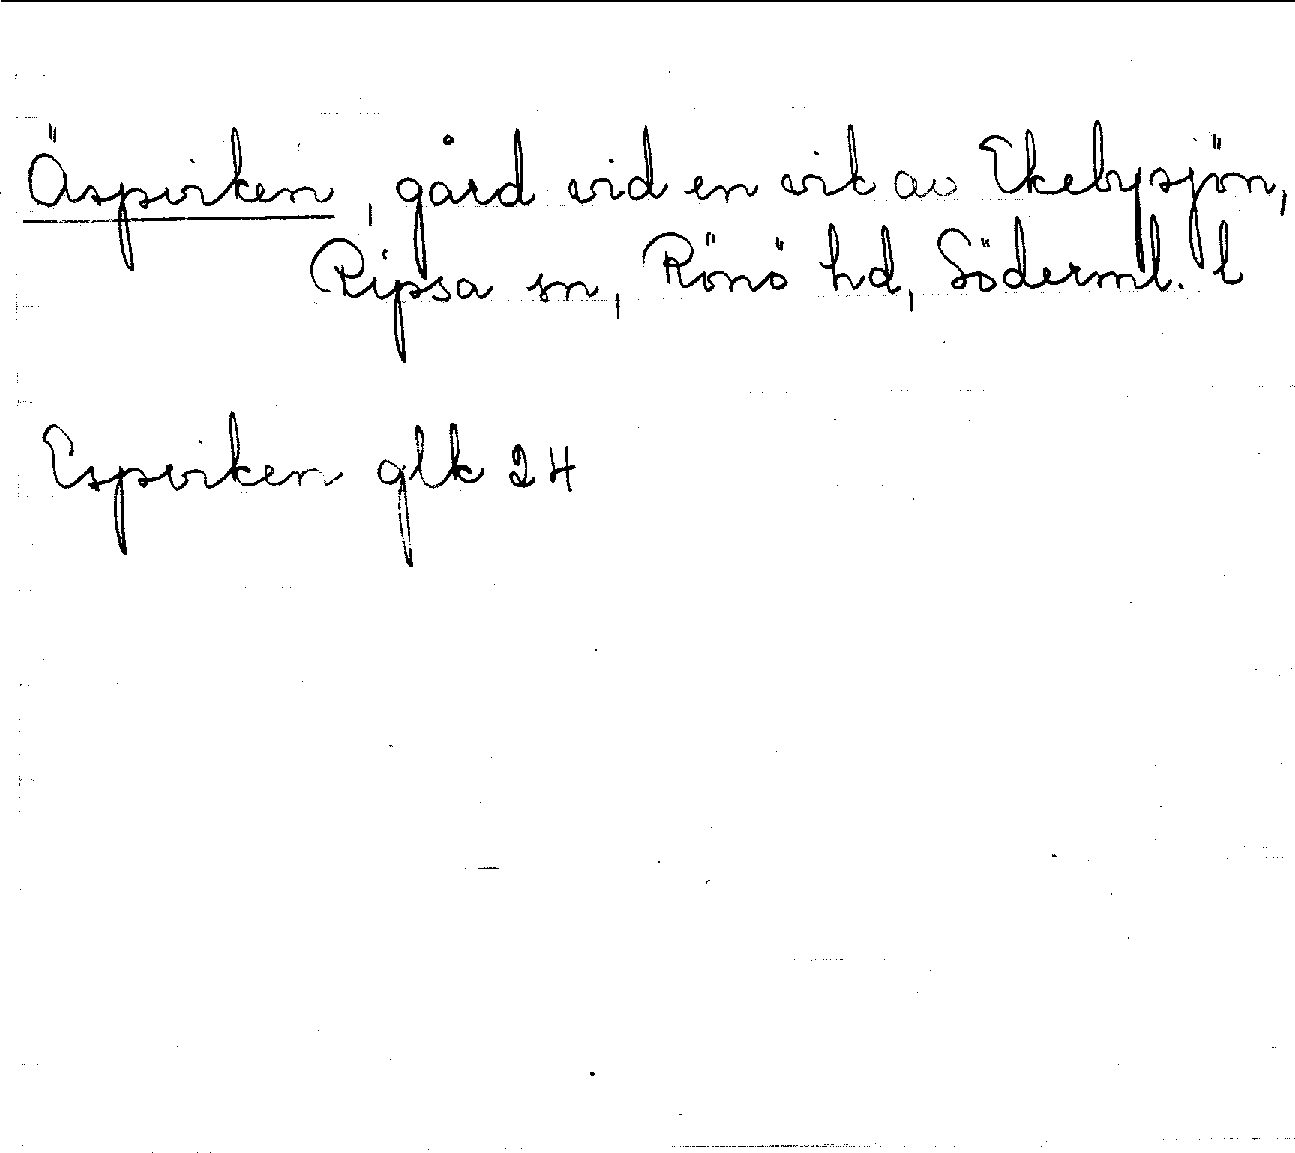 Äspviken, gård vid en vik av Ekebysjön,
Ripsa sn, Rönö hd, Söderml. l
Espviken glk 24